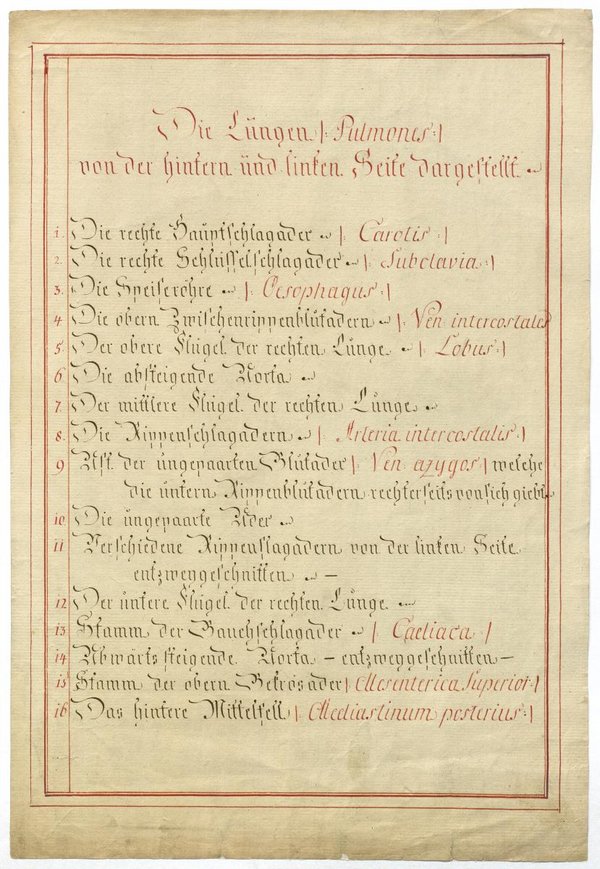 Die Lungen |: Pulmones :|
von der hintern und linken Seite dargestellt.
1. Die rechte Hauptschlagader |: Carotis :|
2. Die rechte Schlüsselschlagader |: Subclavia :|
3. Die Speiseröhre |: Oesophagus :|
4 Die obern Zwischenrippenblutadern |: Ven intercostales
5. Der obere Flügel der rechten Lunge. |: Lobus :|
6 Die absteigende Aorta
7. Der mittlere Flügel der rechten Lunge
8. Die Rippenschlagadern |: Arteria intercostalis :|
9 Ast der ungepaarten Blutader |: Ven azygos :| welche
die untern Rippenblutadern rechterseits von sich giebt
10 Die ungepaarte Ader
11 Verschiedene Rippenslagadern von der linken Seite
entzweygeschnitten —
12 Der untere Flügel der rechten Lunge.
13 Stamm der Bauchschlagader |: Caeliaca |
14 Abwärts steigende Aorta – entzweygeschnitten –
15 Stamm der obern Bekrösader |: Mesenterica Superior :|
16 Das hintere Mittelfell |: Mediastinum posterius :|